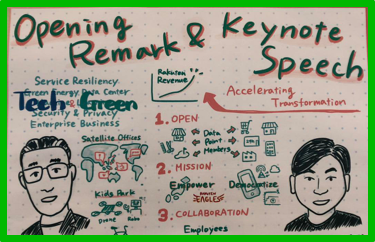 Opening Remark & Keynote Speech
Service Resiliency
Green Energy Data Center
Tech Green
Security & Privacy
Enterprise Business
Rakuten Revenue
Accelerating Transformation
Satellite Offices
1. OPEN
Data
Point
Members
2. MISSION
Empower
Democratize
EAGLES
Kids Park
Drone
Robo
3. COLLABORATION
Employees